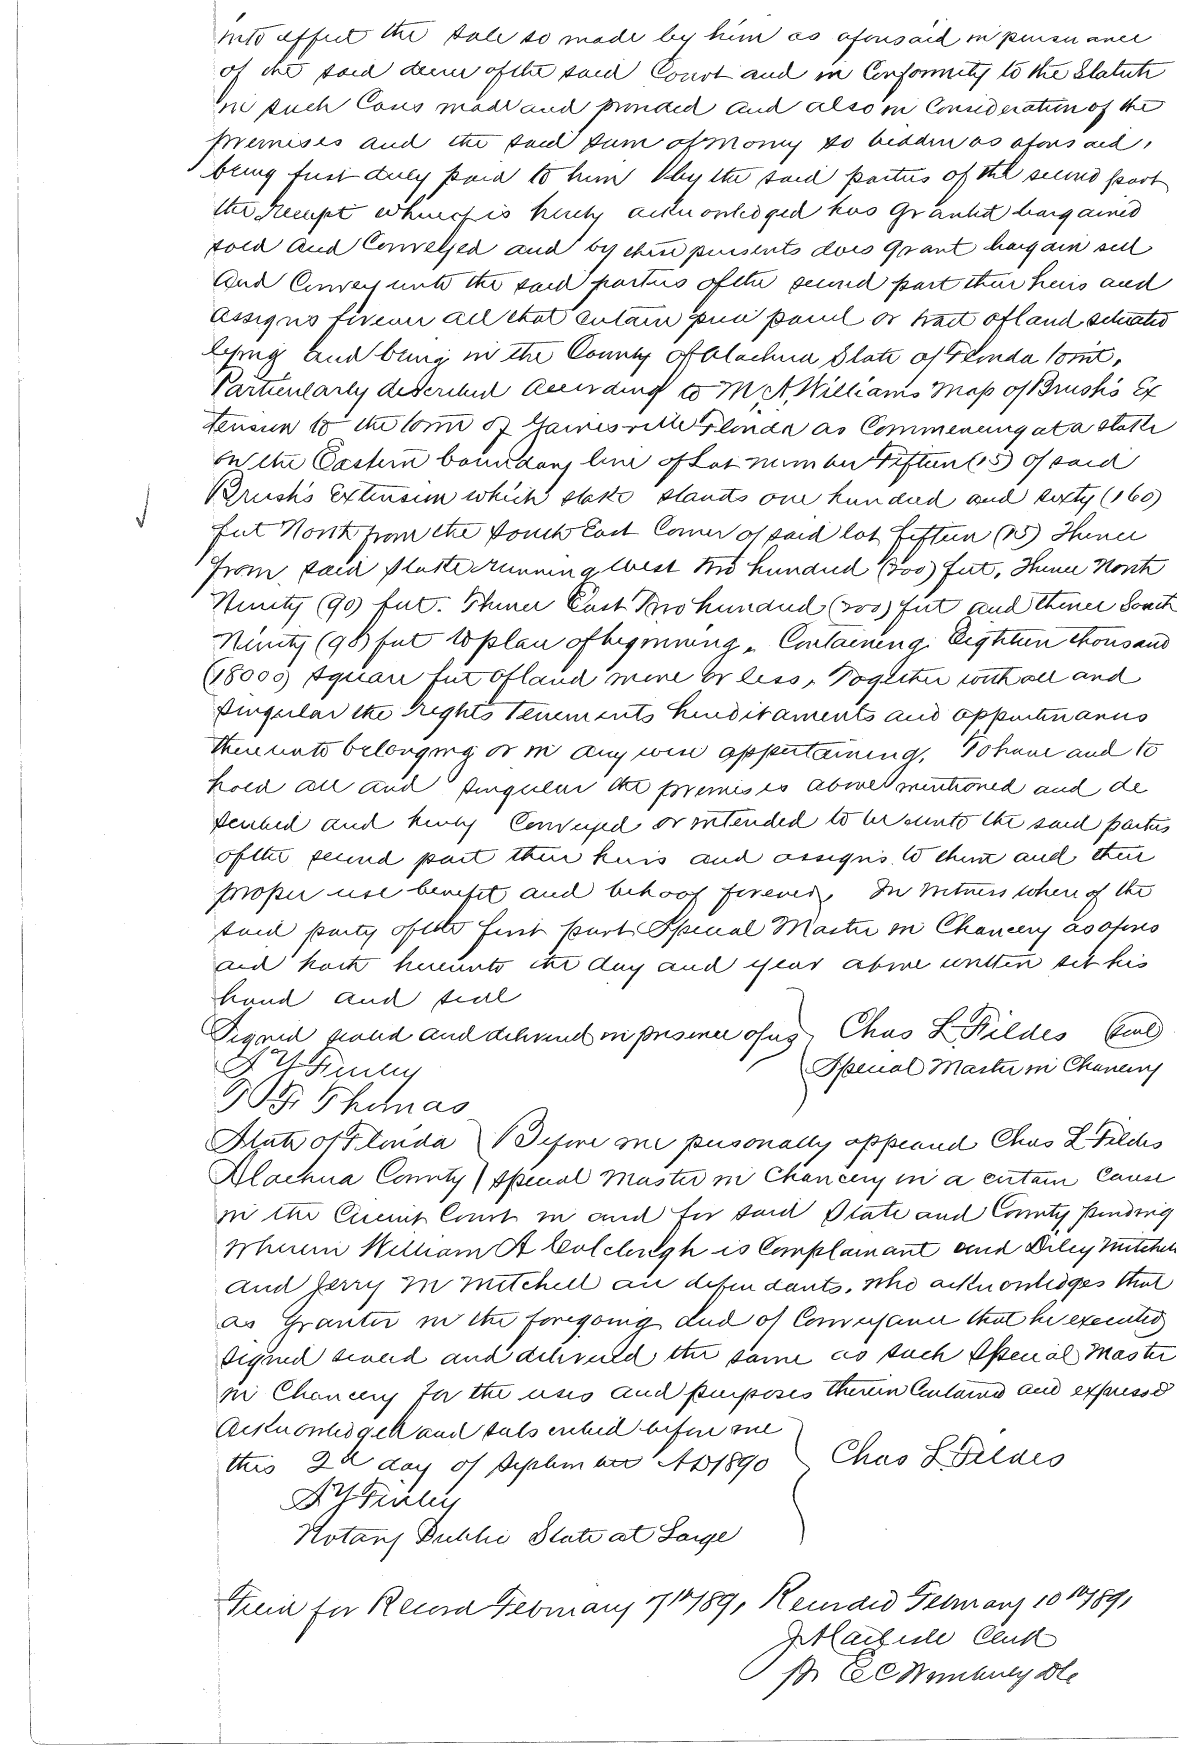 into effect the sale so made by him as aforesaid in pursuance
of the said decree of the said Court and in Conformity to the Statute
in such Cases made and provided and also in Consideration of the
premises and the said sum of money so bidden as aforesaid,
being first duly paid to him by the said parties of the second part
the receipt whereof is hereby acknowledged has Granted bargained
sold and Conveyed and by these presents does grant bargain sell
and Convey unto the said parties of the second part their heirs and
assigns forever all that certain piece parcel or tract of land situated
lying and being in the County of Alachua State of Florida towit,
Particularly described according to M, A, Williams Map of Brush's Ex
tension to the town of Gainesville Florida as Commencing at a stake
on the Eastern boundary line of Lot number Fifteen (15) of said
Brush's Extension which stake stands one hundred and sixty (160)
feet North from the South East Corner of said lot fifteen (15) Thence
from said stake running West Two hundred (200) feet, Thence North
Ninety (90) feet. Thence East Two hundred (200) feet and thence South
Ninety (90) feet to place of beginning. Containing Eighteen thousand
(18000) square feet of land more or less, Together with all and
singular the rights tenements hereditaments and appurtenances
thereunto belonging or in any wise appertaining, To have and to
hold all and singular the premises above mentioned and de
scribed and hereby Conveyed or intended to be unto the said parties
of the second part their heirs and assigns to them and their
proper use benefit and behoof forever, In Witness where of the
said party of the first part Special Master in Chancery as afores
aid hath hereunto the day and year above written set his
hand and seal
Signed sealed and delivered in presence of us Chas L. Fildes (seal)
Finley Special Master in Chancery
Thomas
State of Florida Before me personally appeared Chas L Fildes
Alachua County Special Master in Chancery in a certain Cause
in the Circuit Court in and for said State and County pending
wherein William A Colclough is Complainant and Diley Mitchell
and Jerry M Mitchell are defendants, who acknowledges that
as Grantor in the foregoing deed of Conveyance that he executed
signed sealed and delivered the same as such Special Master
in Chancery for the uses and purposes therein Contained and expressed
Acknowledged and subscribed before me
this 2d day of September AD 1890 Chas L. Fildes
Finley
Notary Public State at Large
Filed for Record February 7th 1891 Recorded February 10th 1891
Clerk
E C DC